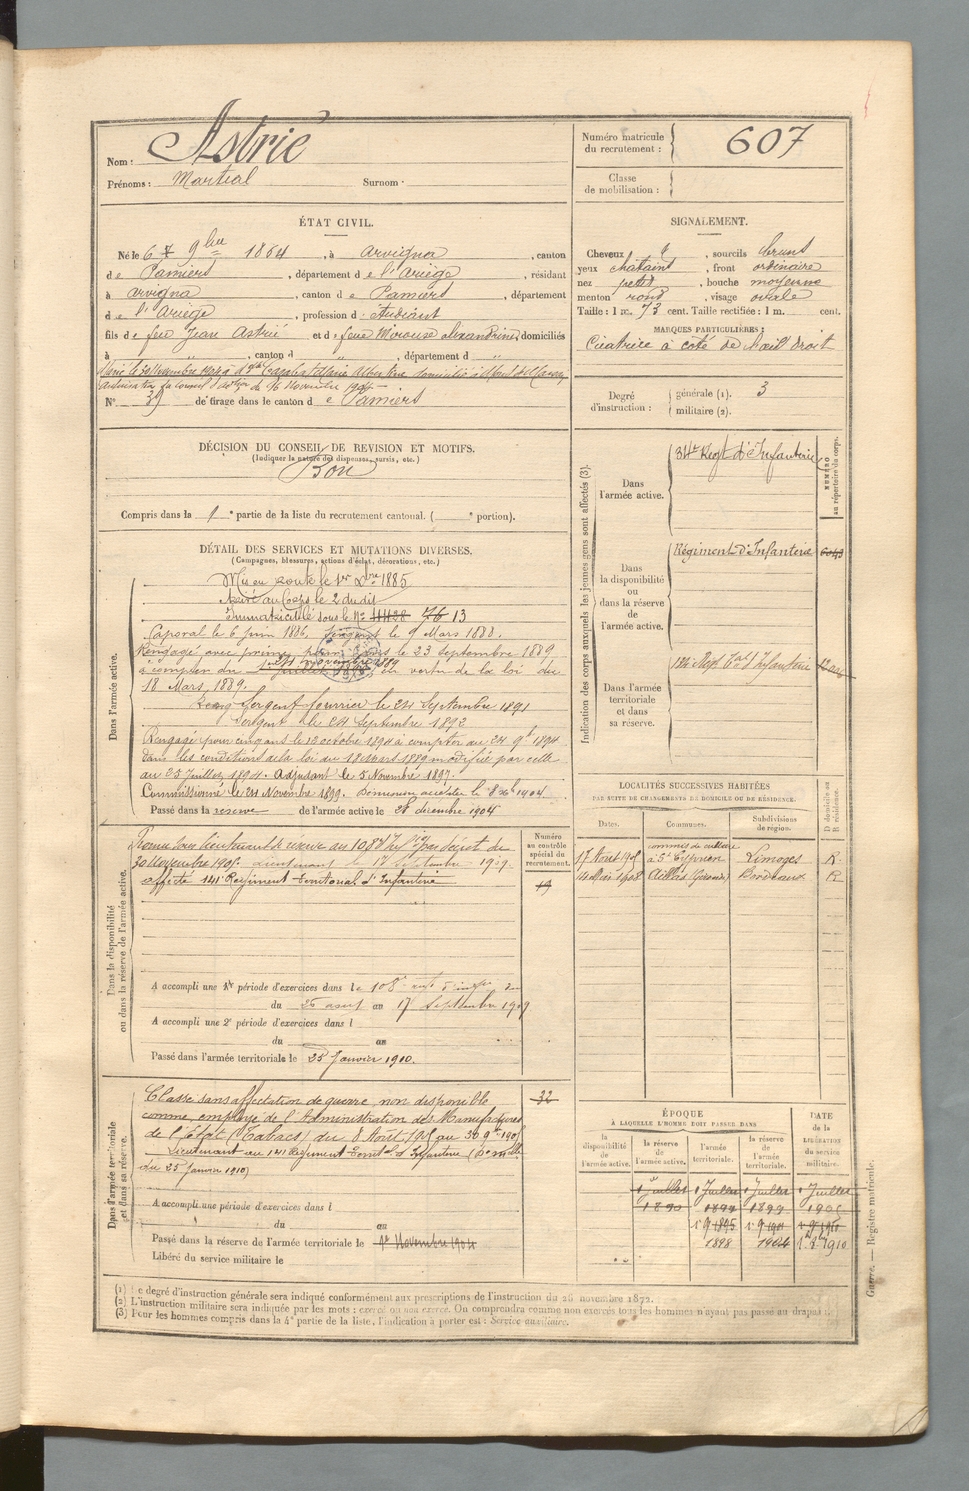 Nom : Astrié
Prénoms : Martial Surnom :
Numéro matricule du recrutement : 607
Classe de mobilisation :
ÉTAT CIVIL.
Né le 6 9bre 1864, à Arvigna, canton
de Pamiers, département de l'Ariège, résidant
à Arvigna, canton de Pamiers, département
de l'Ariège, profession d Étudiant
fils de feu Jean Astrié et de feue Mirouse Alexandrine, domiciliés
à , canton d , département d "
Autorisation du Conseil d' du 16 Novembre 1904
N° 39 de tirage dans le canton de Pamiers
SIGNALEMENT.
Cheveux , sourcils bruns
yeux chatains, front ordinaire
nez petit, bouche moyenne
menton rond, visage ovale
Taille : 1 m. 73 cent. Taille rectifiée : 1 m. cent.
MARQUES PARTICULIÈRES :
Cicatrice à coté de l'œil droit
Degré d'instruction : générale (1). 3
militaire (2).
DÉCISION DU CONSEIL DE REVISION ET MOTIFS.
(Indiquer la nature des dispenses, sursis, etc.)
Bon
Compris dans la 1e partie de la liste du recrutement cantonal. ( e portion).
DÉTAIL DES SERVICES ET MUTATIONS DIVERSES.
(Campagnes, blessures, actions d'éclat, décorations, etc.)
Dans l'armée active.
Mis en route le 1er Xbre 1885
Arrivé au Corps le 2 du dit
Immatriculé sous le N° 4428 76 13
Caporal le 6 Juin 1886. Sergent le 9 Mars 1888.
Rengagé avec prime pour ans le 23 Septembre 1889
à compter du 24 novembre 1889 en vertu de la loi du
18 Mars 1889.
Sergent fourrier le 24 Septembre 1891
Sergent le 24 Septembre 1892
Rengagé pour cinq ans le 12 octobre 1894 à compter du 24 9bre 1894
dans les conditions de la loi du 18 mars 1889 modifiée par celle
du 25 Juillet 1894. Adjudant le 5 Novembre 1897.
Commissionné le 24 Novembre 1899. Démission acceptée le 8 Xbre 1904
Passé dans la réserve de l'armée active le 28 décembre 1904
Indication des corps auxquels les jeunes gens sont affectés (3).
NUMÉRO au répertoire du corps.
Dans l'armée active.
34e Regt d'Infanterie
Dans la disponibilité ou dans la réserve de l'armée active.
Régiment d'Infanterie
Dans l'armée territoriale et dans sa réserve.
Regt d'Infanterie
Dans la disponibilité ou dans la réserve de l'armée active.
Numéro au contrôle spécial du recrutement.
Nommé sous lieutenant de réserve au 108e Regt d'Infie par décret du
30 Novembre 1905. Lieutenant le 17 Septembre 1909.
affecté 141e Régiment territorial d'Infanterie
19
A accompli une 1re période d'exercices dans le 108e
du 26 aout au 17 Septembre 1907
A accompli une 2e période d'exercices dans l
du au
Passé dans l'armée territoriale le 25 Janvier 1910.
LOCALITÉS SUCCESSIVES HABITÉES
PAR SUITE DE CHANGEMENTS DE DOMICILE OU DE RÉSIDENCE.
Dates. Communes. Subdivisions de région. D domicile ou R résidence.
commis de culture
17 Aout 1905 à St Cyprien Limoges R.
14 Mai 1908 Aillas (Gironde) Bordeaux R
Dans l'armée territoriale et dans sa réserve.
Classé sans affectation de guerre, non disponible
comme employé de l'Administration des Manufactures
de l'État (Tabacs) du 8 Aout 1905 au 30 9bre 1905
Lieutenant au 141e Régiment Territal d'Infanterie
du 25 Janvier 1910)
32
A accompli une période d'exercices dans l
du au
Passé dans la réserve de l'armée territoriale le 1er Novembre 1904
Libéré du service militaire le
ÉPOQUE
À LAQUELLE L'HOMME DOIT PASSER DANS
la disponibilité de l'armée active. la réserve de l'armée active. l'armée territoriale. la réserve de l'armée territoriale. DATE de la LIBÉRATION du service militaire.
1 Juillet 1 Juillet 1 Juillet 1 Juillet
1890 1899
1898 1904 1910
(1) Le degré d'instruction générale sera indiqué conformément aux prescriptions de l'instruction du 26 novembre 1872.
(2) L'instruction militaire sera indiquée par les mots : exercé ou non exercé. On comprendra comme non exercés tous les hommes n'ayant pas passé au drapeau
(3) Pour les hommes compris dans la 4e partie de la liste, l'indication à porter est : Service auxiliaire.
Guerre. — Registre matricule.